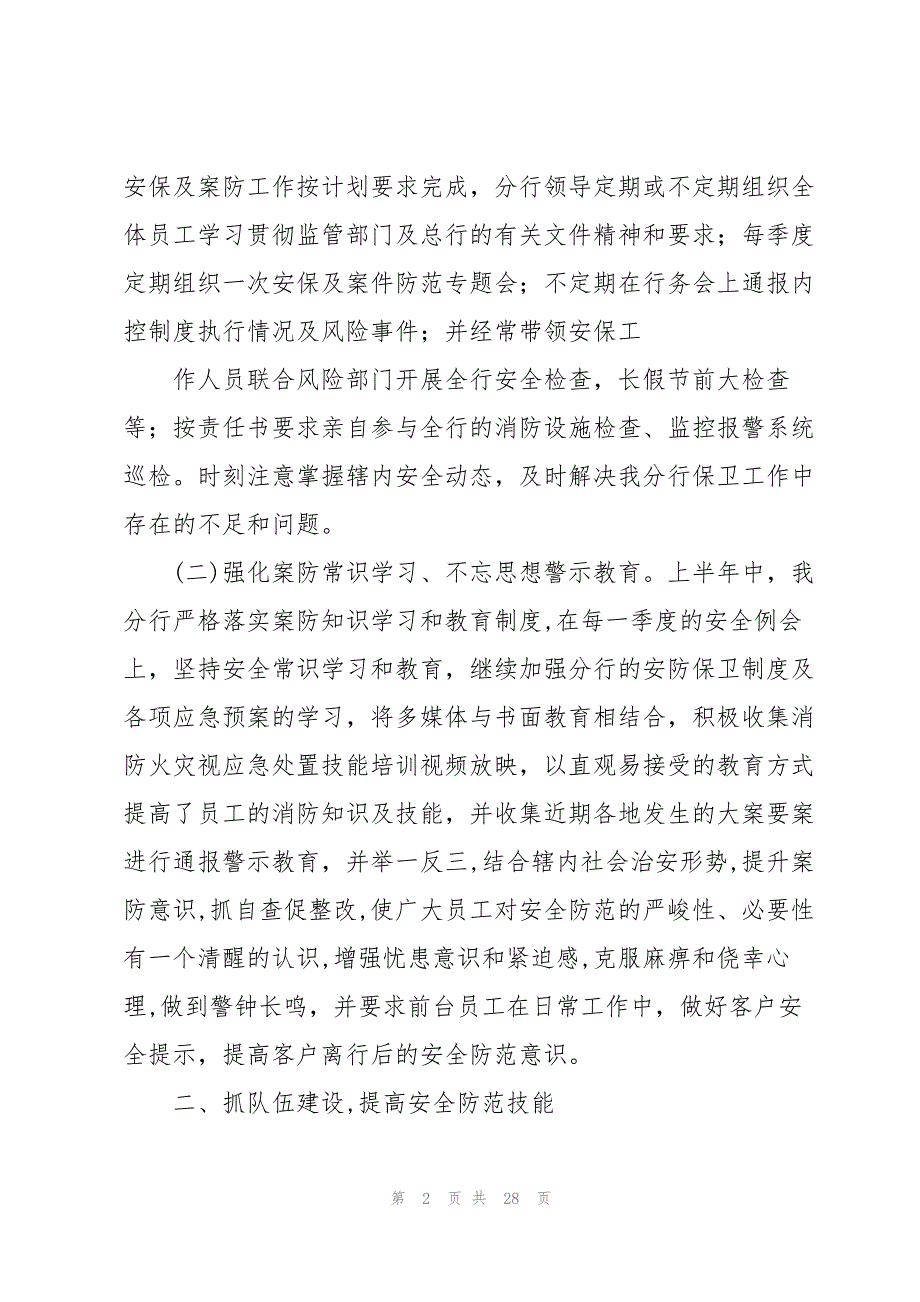 安保及案防工作按计划要求完成，分行领导定期或不定期组织全
体员工学习贯彻监管部门及总行的有关文件精神和要求；每季度
定期组织一次安保及案件防范专题会；不定期在行务会上通报内
控制度执行情况及风险事件；并经常带领安保工
作人员联合风险部门开展全行安全检查，长假节前大检查
等；按责任书要求亲自参与全行的消防设施检查、监控报警系统
巡检。时刻注意掌握辖内安全动态，及时解决我分行保卫工作中
存在的不足和问题。
(二)强化案防常识学习、不忘思想警示教育。上半年中，我
分行严格落实案防知识学习和教育制度,在每一季度的安全例会
上，坚持安全常识学习和教育，继续加强分行的安防保卫制度及
各项应急预案的学习，将多媒体与书面教育相结合，积极收集消
防火灾视应急处置技能培训视频放映，以直观易接受的教育方式
提高了员工的消防知识及技能，并收集近期各地发生的大案要案
进行通报警示教育，并举一反三,结合辖内社会治安形势,提升案
防意识,抓自查促整改,使广大员工对安全防范的严峻性、必要性
有一个清醒的认识,增强忧患意识和紧迫感,克服麻痹和侥幸心
理,做到警钟长鸣，并要求前台员工在日常工作中，做好客户安
全提示，提高客户离行后的安全防范意识。
二、抓队伍建设,提高安全防范技能
第 2 页 共 28 页